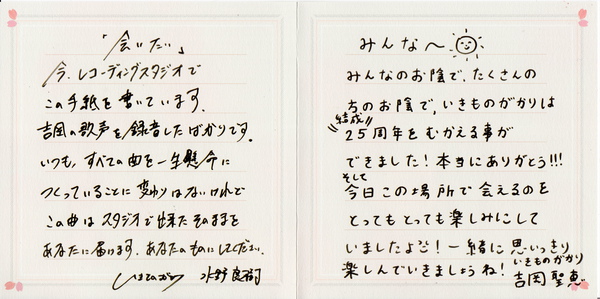 「会いたい」
今、レコーディングスタジオで
この手紙を書いています。
吉岡の歌声を録音したばかりです。
いつも、すべての曲を一生懸命に
つくっていることに変わりはないけれど
この曲はスタジオで出来たそのままを
あなたに届けます。あなたのものにしてください。
いきものがかり 水野良樹
みんな〜
みんなのお陰で、たくさんの
力のお陰で、いきものがかりは
結成
25周年をむかえる事が
できました!本当にありがとう!!!
そして
今日この場所で会えるのを
とってもとっても楽しみにして
いましたよご!一緒に思いっきり
楽しんでいきましょうね!
いきものがかり
吉岡聖恵